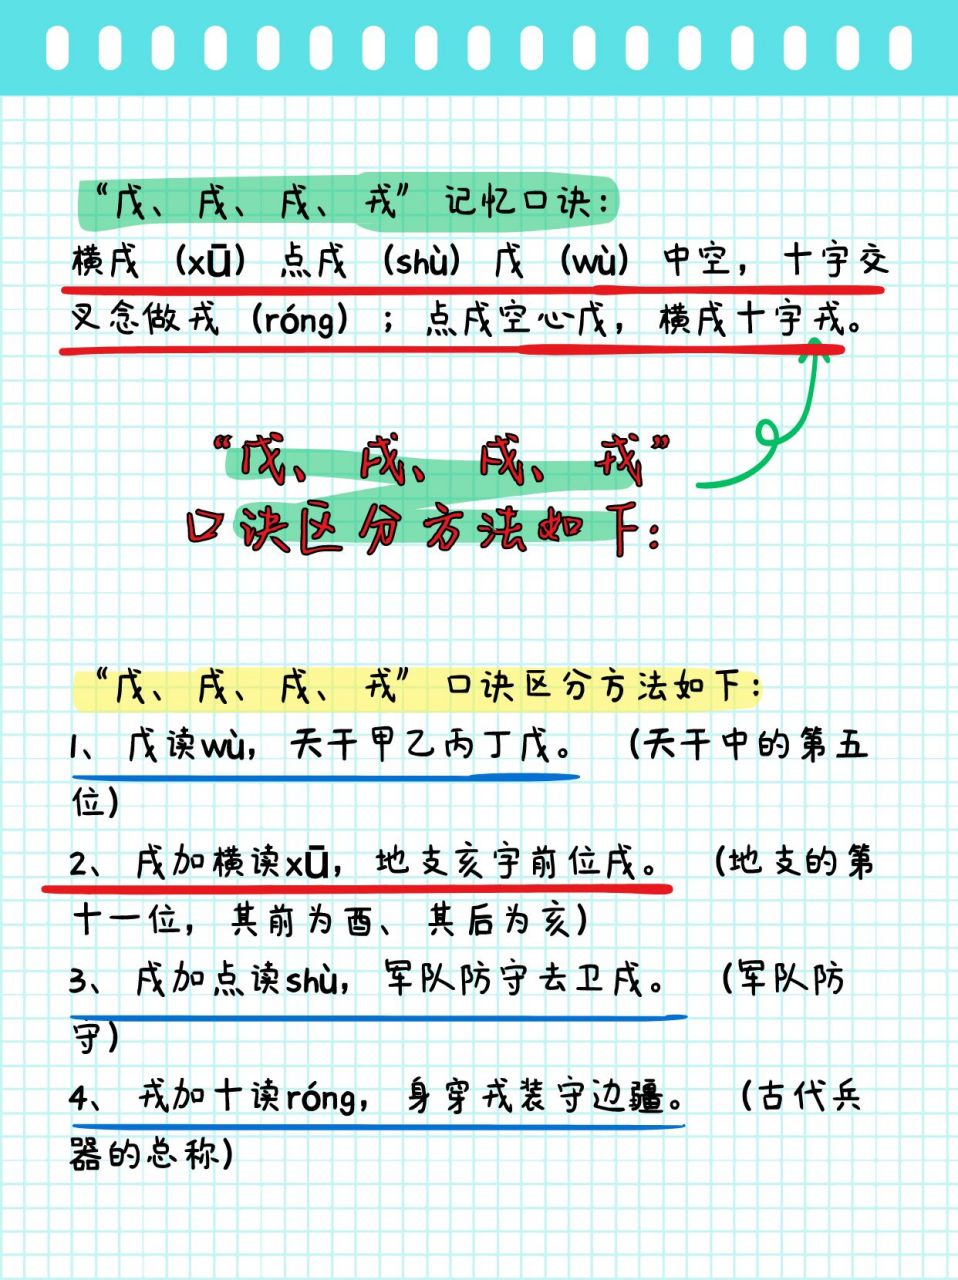 “戊、戌、戍、戎”记忆口诀：
横戌（xū）点戍（shù）戊（wù）中空，十字交
叉念做戎（róng）；点戍空心戊，横戌十字戎。
“戊、戌、戍、戎”
口诀区分方法如下：
“戊、戌、戍、戎”口诀区分方法如下：
1、戊读wù，天干甲乙丙丁戊。（天干中的第五
位）
2、戌加横读xū，地支亥字前位戌。（地支的第
十一位，其前为酉、其后为亥）
3、戍加点读shù，军队防守去卫戍。（军队防
守）
4、戎加十读róng，身穿戎装守边疆。（古代兵
器的总称）